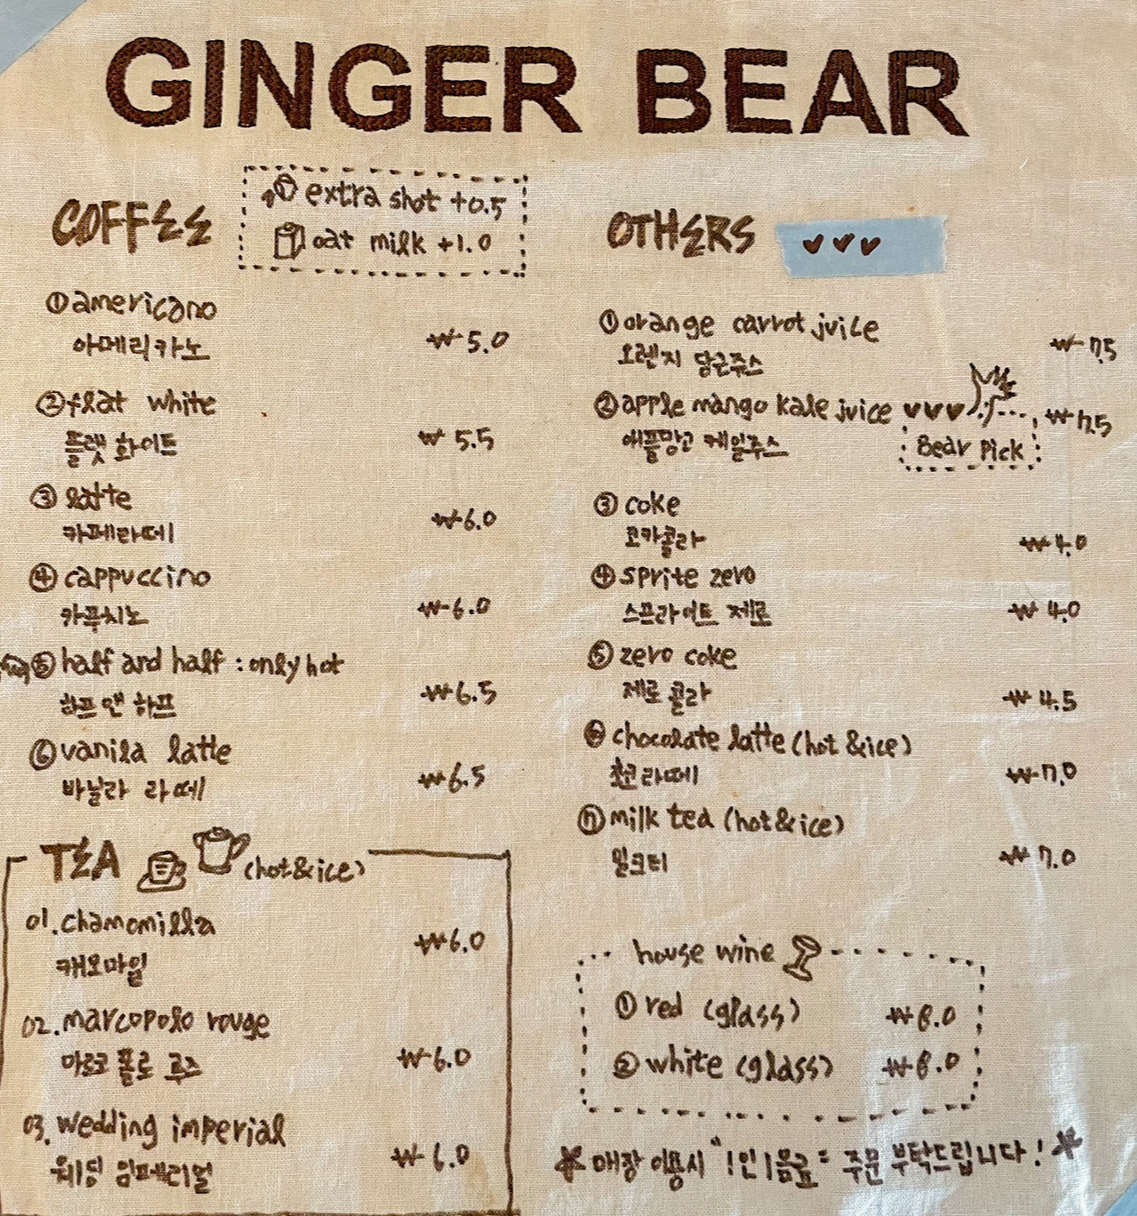 GINGER BEAR
COFFEE
extra shot +0.5
oat milk +1.0
① americano
아메리카노 ₩5.0
② flat white
플랫 화이트 ₩5.5
③ latte
카페라떼 ₩6.0
④ cappuccino
카푸치노 ₩6.0
⑤ half and half : only hot
하프 앤 하프 ₩6.5
⑥ vanila latte
바닐라 라떼 ₩6.5
TEA (hot&ice)
01. chamomilla
캐모마일 ₩6.0
02. marcopolo rouge
마르코 폴로 루즈 ₩6.0
03. wedding imperial
웨딩 임페리얼 ₩6.0
OTHERS
① orange carrot juice ₩7.5
오렌지 당근쥬스
② apple mango kale juice ₩7.5
애플망고 케일쥬스
Bear Pick
③ coke
코카콜라 ₩4.0
④ sprite zero
스프라이트 제로 ₩4.0
⑤ zero coke
제로 콜라 ₩4.5
⑥ chocolate latte (hot &ice)
초코 라떼 ₩7.0
⑦ milk tea (hot&ice)
밀크티 ₩7.0
house wine
① red (glass)
② white (glass)
매장 이용시 "1인 1음료" 주문 부탁드립니다!